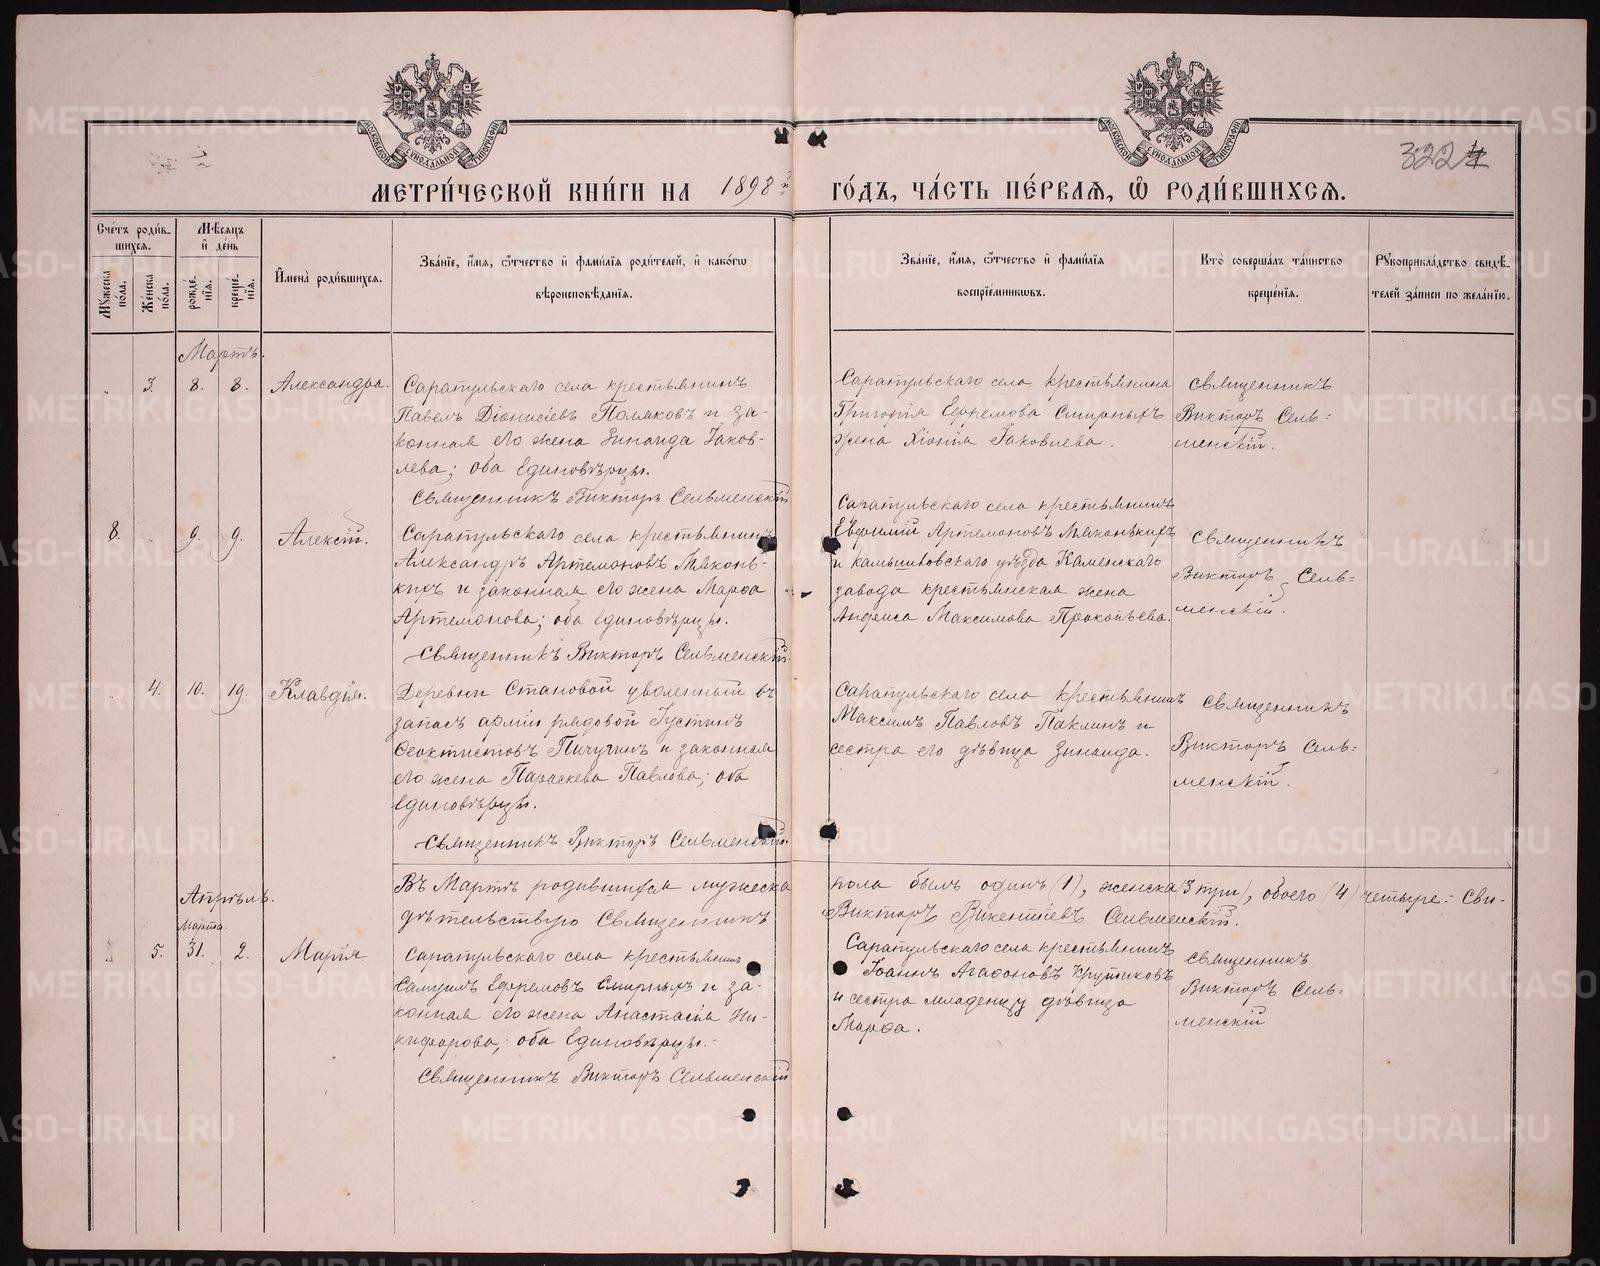 МОСКОВСКОЙ СѴНОДАЛЬНОЙ ТИПОГРАФІИ
МОСКОВСКОЙ СѴНОДАЛЬНОЙ ТИПОГРАФІИ
322
МЕТРИ́ЧЕСКОЙ КНИ́ГИ НА 1898 й
ГО́ДЪ, ЧА́СТЬ ПЕ́РВАѦ, Ѡ РОДИ́ВШИХСѦ.
Сче́тъ роди́в-
шихсѧ.
Мѣ́сѧцъ
и҆ де́нь
Мꙋ́жеска по́ла.
Же́нска по́ла.
рожде́-
нїѧ.
креще́-
нїѧ.
И҆мена̀ роди́вшихсѧ.
Зва́нїе, и҆́мѧ, ѻ҆́тчество и҆ фами́лїѧ роди́телей, и҆ како́гѡ
вѣроисповѣ́данїѧ.
Зва́нїе, и҆́мѧ, ѻ҆́тчество и҆ фами́лїѧ
воспрїе́мникѡвъ.
Кто̀ соверша́лъ та́инство
креще́нїѧ.
Рꙋкоприкла́дство свидѣ́-
телей за́писи по жела́нїю.
Мартъ.
3. 8. 8. Александра.
Сарапульскаго села крестьянинъ
Павелъ Діонисіевъ Поляковъ и за-
конная его жена Зинаида Іаков-
лева; оба Единовѣрцы.
Священникъ Викторъ Сельменскій
Сарапульскаго села крестьянина
Григорія Ефремова Смирныхъ
жена Хіонія Іаковлева.
священникъ
Викторъ Сель-
менскій.
8. 9. 9. Алексій.
Сарапульскаго села крестьянинъ
Александръ Артемоновъ Мяконь-
кихъ и законная его жена Марѳа
Артемонова; оба Единовѣрцы.
Священникъ Викторъ Сельменскій.
Сарапульскаго села крестьянинъ
Евфимій Артемоновъ Мяконькихъ
и камышловскаго уѣзда Каменскаго
завода крестьянская жена
Анфиса Максимова Прокопьева.
священникъ
Викторъ Сель-
менскій.
4. 10. 19. Клавдія.
Деревни Становой уволенный въ
запасъ арміи рядовой Іустинъ
Ѳеоктистовъ Пичугинъ и законная
его жена Параскева Павлова; оба
Единовѣрцы.
Священникъ Викторъ Сельменскій.
Сарапульскаго села крестьянинъ
Максимъ Павловъ Паклинъ и
сестра его дѣвица Зинаида.
священникъ
Викторъ Сель-
менскій.
Въ Мартѣ родившихся мужеска
пола былъ одинъ (1), женска (3 три), обоего (4) четыре. Сви-
дѣтельствую Священникъ
Викторъ Викентіевъ Сельменскій.
Апрѣль.
Марта
5. 31. 2. Марія
Сарапульскаго села крестьянинъ
Самуилъ Ефремовъ Смирныхъ и за-
конная его жена Анастасія Ни-
кифорова; оба Единовѣрцы.
Священникъ Викторъ Сельменскій
Сарапульскаго села крестьянинъ
Іоаннъ Агафоновъ Крутиковъ
и сестра младенцу дѣвица
Марѳа.
священникъ
Викторъ Сель-
менскій
METRIKI.GASO-URAL.RU